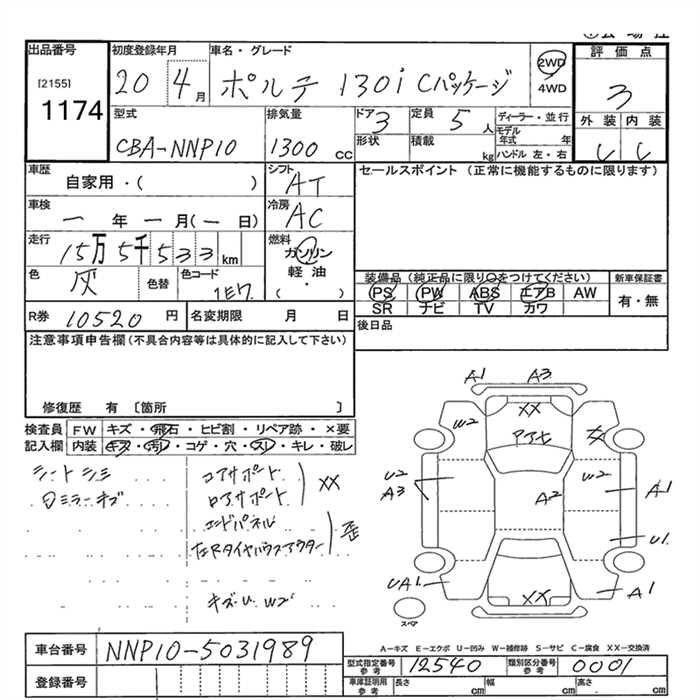 出品番号
[2155]
1174
初度登録年月
20 4月
車名・グレード
ポルテ 130i Cパッケージ
2WD
4WD
評価点
3
外装 内装
型式
CBA-NNP10
排気量
1300 cc
ドア 3
形状
定員 5人
積載 kg
ディーラー・並行
モデル年式 年
ハンドル 左・右
車歴
自家用・( )
シフト
AT
セールスポイント (正常に機能するものに限ります)
車検
一年一月(一日)
冷房
AC
走行
15万5千533km
燃料
ガソリン
軽油
( )
色
灰
色替
色コード
1E7
装備品 (純正品に限り○をつけてください)
PS PW ABS エアB AW
SR ナビ TV カワ
新車保証書
有・無
R券 10520円
名変期限 月 日
後日品
注意事項申告欄(不具合内容等は具体的に記入して下さい)
修復歴 有 〔箇所 〕
検査員記入欄
FW キズ・飛石・ヒビ割・リペア跡・×要
内装 キズ・汚れ・コゲ・穴・スレ・キレ・破レ
シートシミ
コアサポート
ロアサポート
XX
エンドパネル
左Rタイヤハウスアウター
歪
キズ・U W2
A1 A3
W2
XX
U2
A3
A2
W2
A1
U1
UA1
XX
A1
スペア
A-キズ E-エクボ U-凹み W-補修跡 S-サビ C-腐食 XX-交換済
車台番号
NNP10-5031989
登録番号
型式指定番号 参考
12540
類別区分番号 参考
0001
車庫証明用 参考
長さ cm
幅 cm
高さ cm